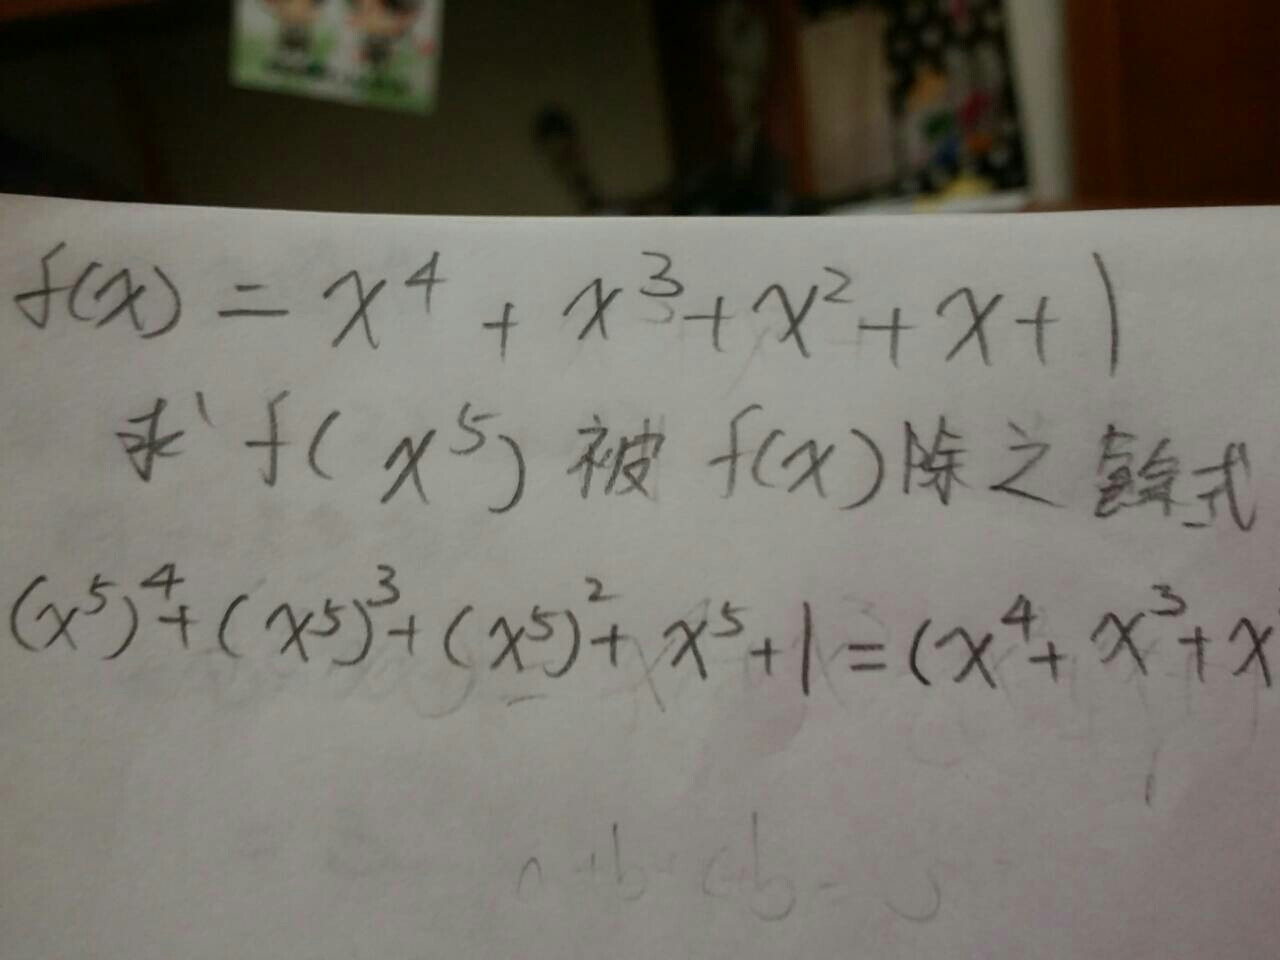 f(x) = x⁴ + x³ + x² + x + 1
求 f(x⁵) 被 f(x) 除之餘式
(x⁵)⁴ + (x⁵)³ + (x⁵)² + x⁵ + 1 = (x⁴ + x³ + x